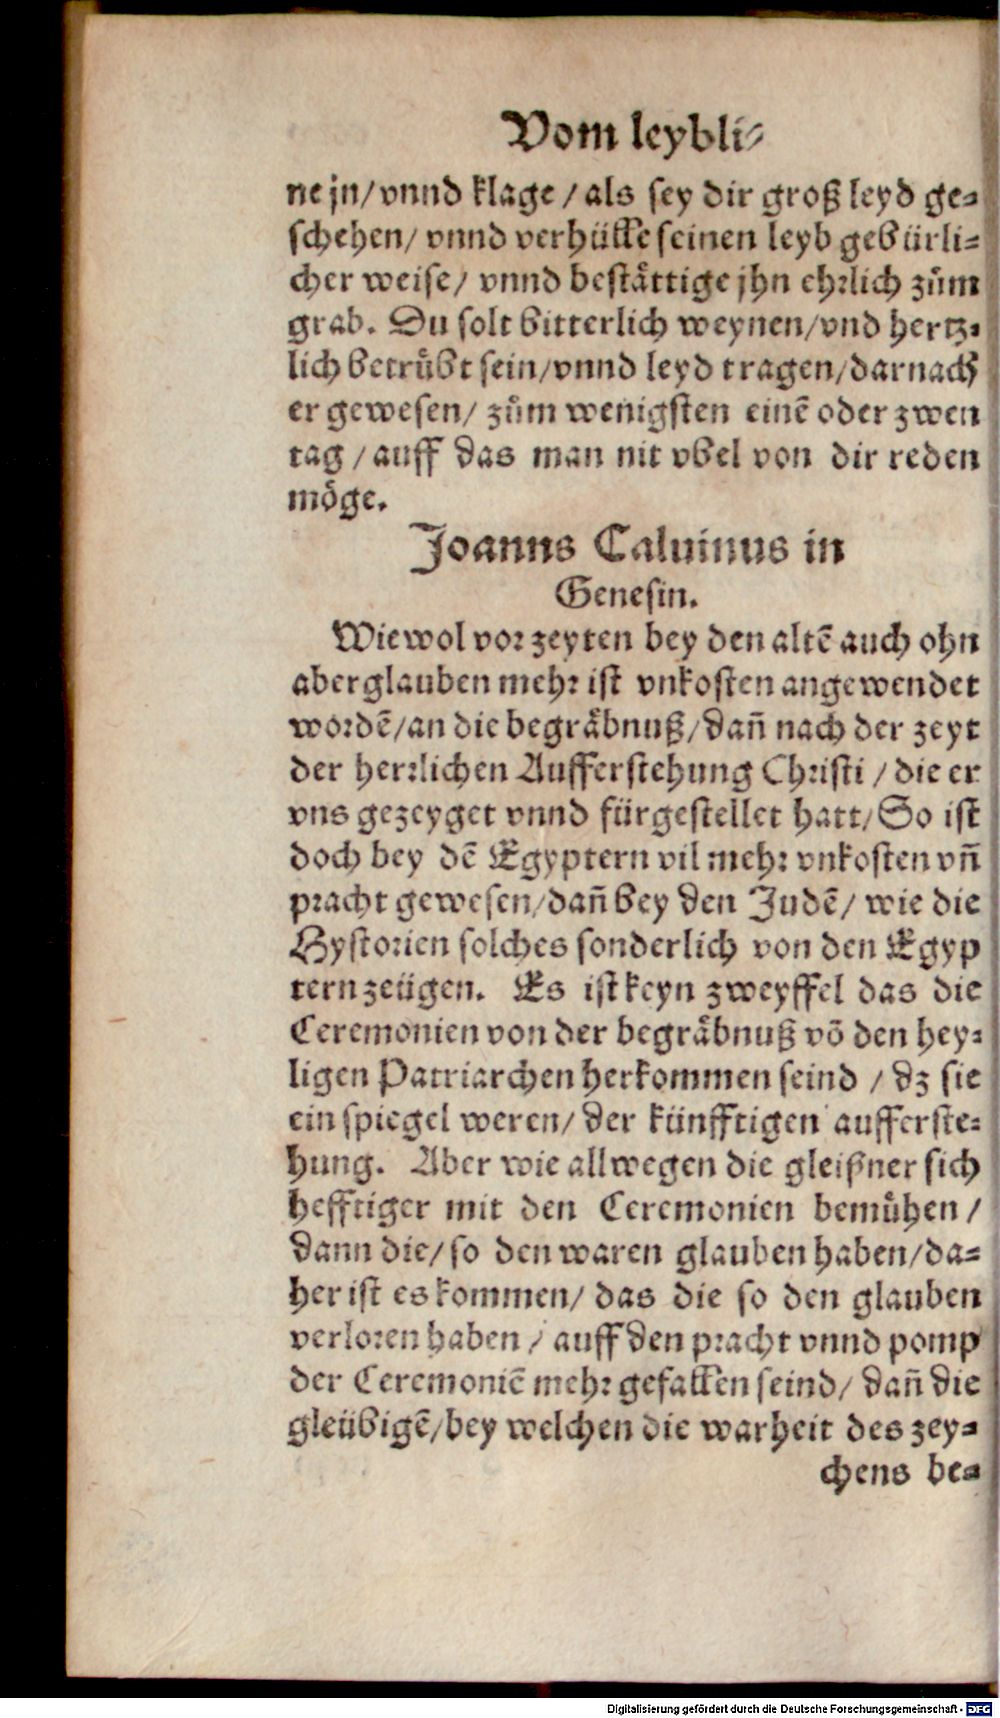 Vom leybli⸗
ne jn/ vnnd klage / als sey dir groß leyd ge⸗
schehen/ vnnd verhülle seinen leyb gebürli⸗
cher weise/ vnnd bestättige jhn ehrlich zům
grab. Du solt bitterlich weynen/ vnd hertz⸗
lich betrůbt sein/ vnnd leyd tragen/ darnach
er gewesen/ zům wenigsten einē oder zwen
tag / auff das man nit vbel von dir reden
möge.
Joanns Caluinus in
Genesin.
Wiewol vor zeyten bey den altē auch ohn
aberglauben mehr ist vnkosten angewendet
wordē/ an die begräbnuß/ dañ nach der zeyt
der herrlichen Aufferstehung Christi / die er
vns gezeyget vnnd fürgestellet hatt/ So ist
doch bey dē Egyptern vil mehr vnkosten vñ
pracht gewesen/ dañ bey den Judē/ wie die
Hystorien solches sonderlich von den Egyp
tern zeügen. Es ist keyn zweyffel das die
Ceremonien von der begräbnuß vō den hey⸗
ligen Patriarchen herkommen seind / dz sie
ein spiegel weren/ der künfftigen aufferste⸗
hung. Aber wie allwegen die gleißner sich
hefftiger mit den Ceremonien bemůhen /
dann die/ so den waren glauben haben/ da⸗
her ist es kommen/ das die so den glauben
verloren haben / auff den pracht vnnd pomp
der Ceremoniē mehr gefallen seind/ dañ die
gleübigē/ bey welchen die warheit des zey⸗
chens be⸗
Digitalisierung gefördert durch die Deutsche Forschungsgemeinschaft - DFG